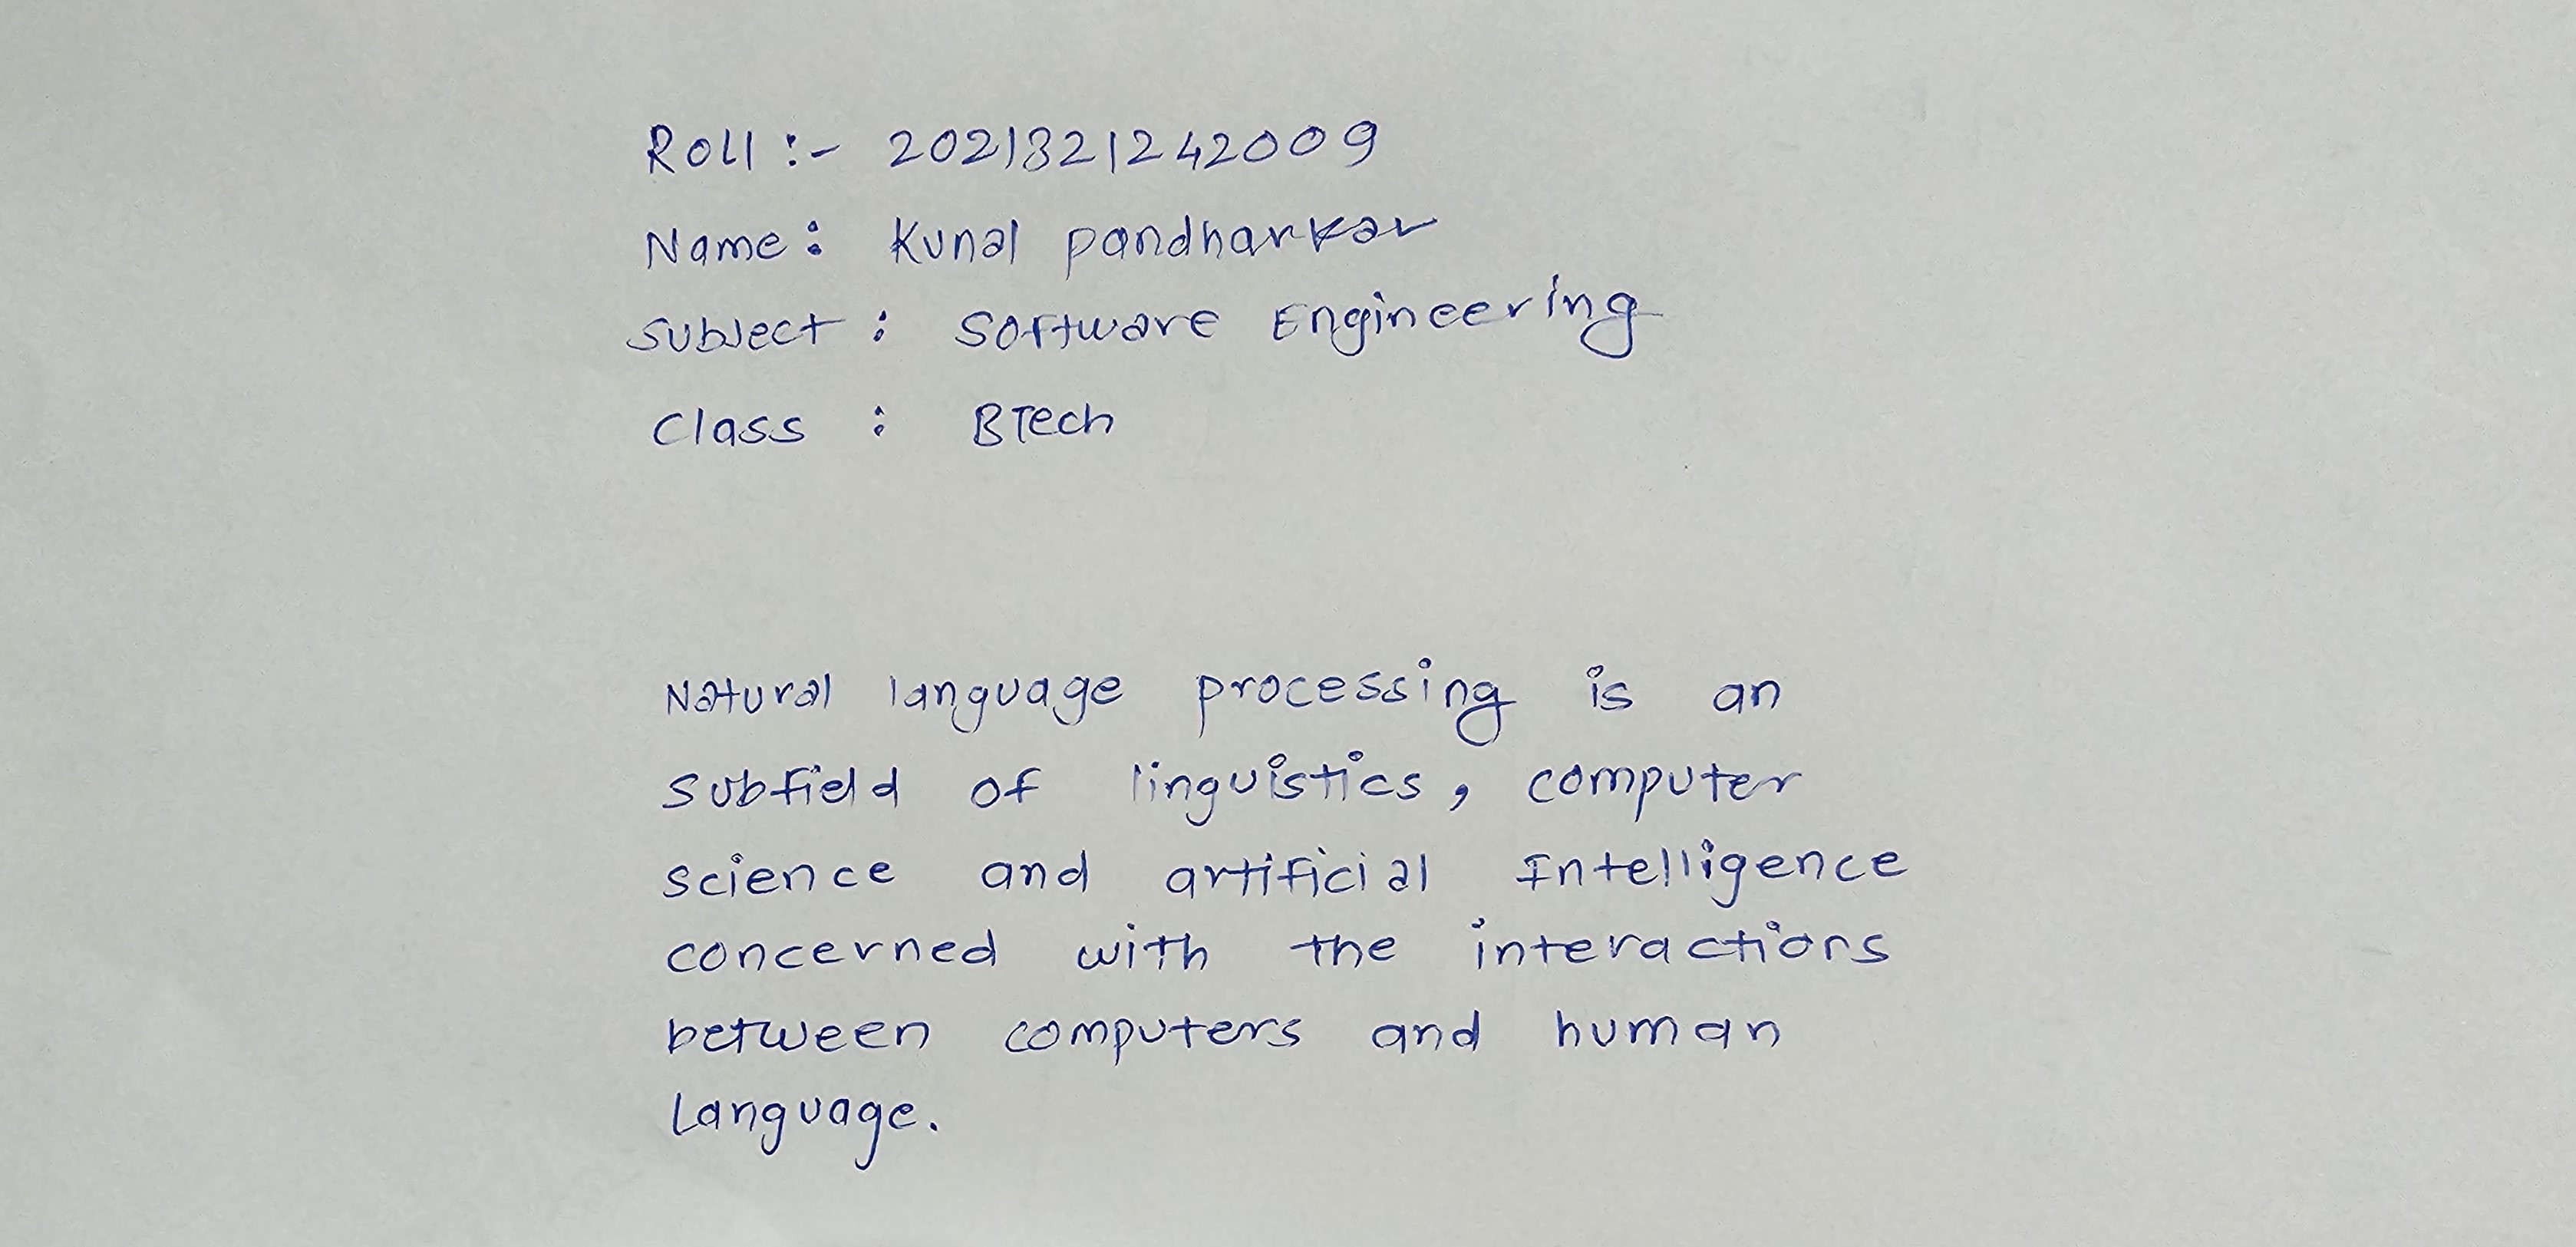 Roll :- 2021321242009
Name : Kunal pandharkar
Subject : Software Engineering
Class : BTech
Natural language processing is an
subfield of linguistics, computer
science and artificial Intelligence
concerned with the interactions
between computers and human
Language.